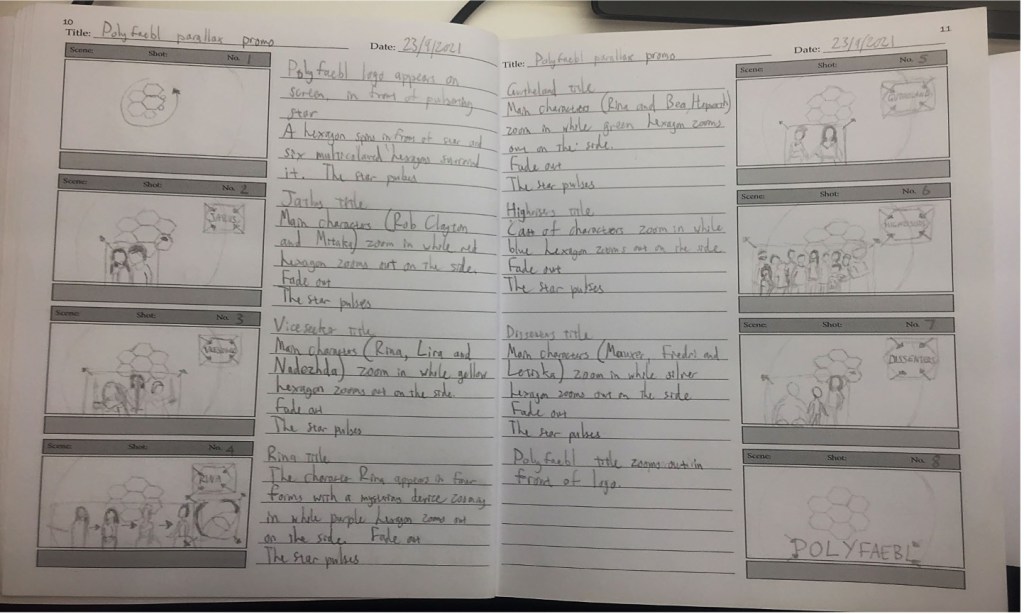 10
Title: Polyfaebl parallax promo Date: 23/9/2021
Scene: Shot: No. 1
Polyfaebl logo appears on
screen, in front of pulsating
star
A hexagon spins in front of star and
six multicolored hexagons surround
it. The star pulses
Scene: Shot: No. 2
title
Main characters (Rob Clayton
and Mitaky) zoom in while red
hexagon zooms out on the side.
Fade out
The star pulses
Scene: Shot: No. 3
title
Main characters (Rina, Lira and
Nadezhda) zoom in while yellow
hexagon zooms out on the side.
Fade out
The star pulses
Scene: Shot: No. 4
RINA
Rina title
The character Rina appears in four
forms with a mysterious device zooming
in while purple hexagon zooms out
on the side. Fade out
The star pulses
11
Title: Polyfaebl parallax promo Date: 23/9/2021
Scene: Shot: No. 5
title
Main characters (Rina and Bea Hepworth)
zoom in while green hexagon zooms
out on the side.
Fade out
The star pulses
Scene: Shot: No. 6
Highrisers title
Cast of characters zoom in while
blue hexagon zooms out on the side
Fade out
The star pulses
Scene: Shot: No. 7
DISSENTERS
Dissenters title
Main characters ( and
) zoom in while silver
hexagon zooms out on the side
Fade out
The star pulses
Scene: Shot: No. 8
Polyfaebl title zooms out in
front of logo.
POLYFAEBL